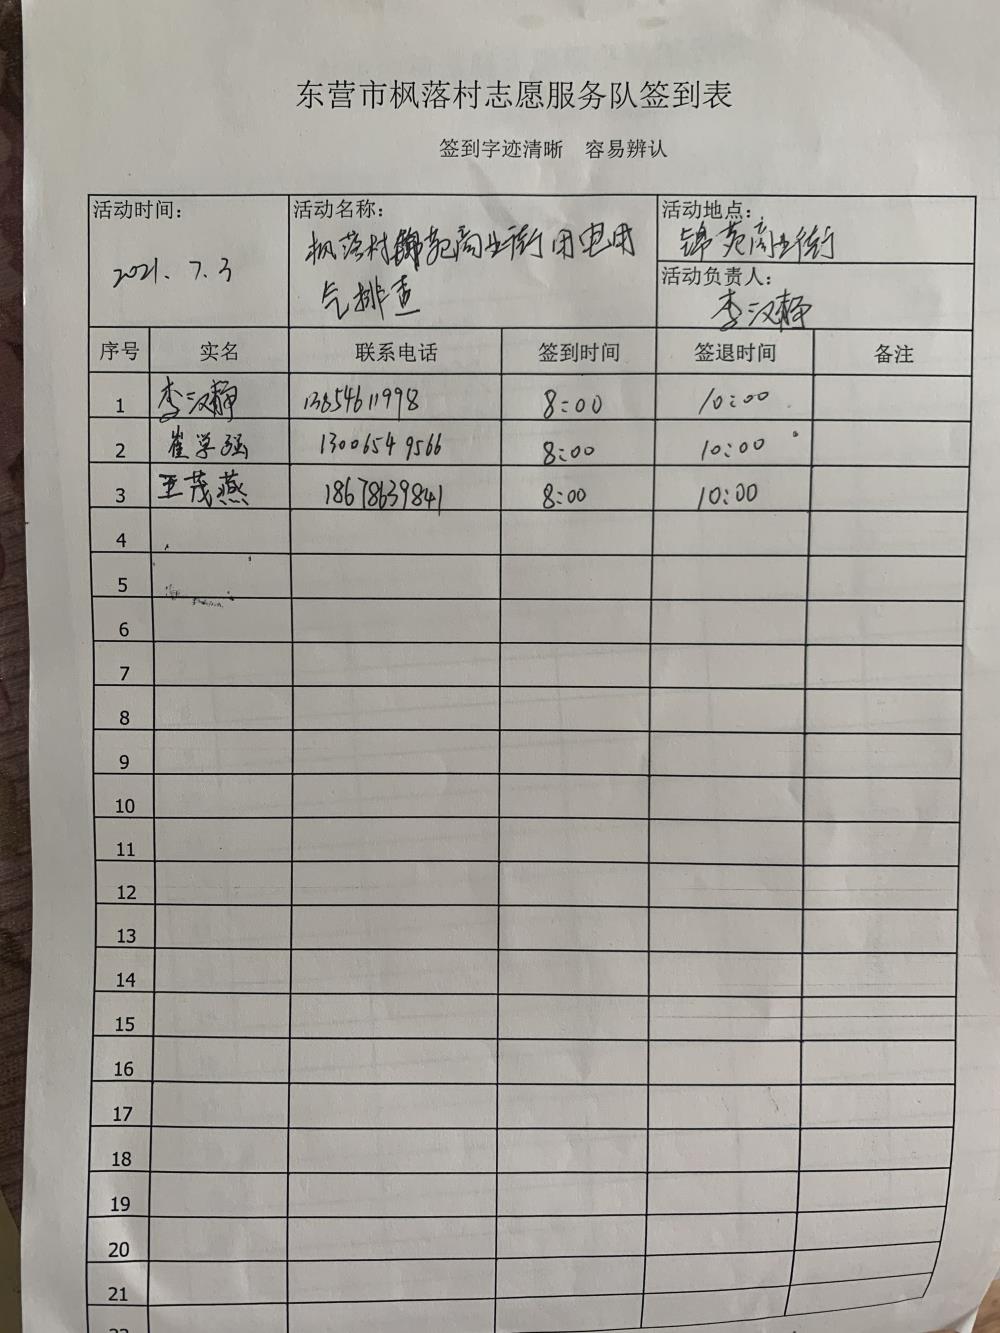 东营市枫落村志愿服务队签到表
签到字迹清晰 容易辨认
活动时间：
2021.7.3
活动名称：
枫落村锦苑商业街用电用
气排查
活动地点：
锦苑商业街
活动负责人：
李汉静
序号 实名 联系电话 签到时间 签退时间 备注
1 李汉静 13854611998 8:00 10:00
2 崔学强 13006549566 8:00 10:00
3 王茂燕 18678639841 8:00 10:00
4
5
6
7
8
9
10
11
12
13
14
15
16
17
18
19
20
21
22